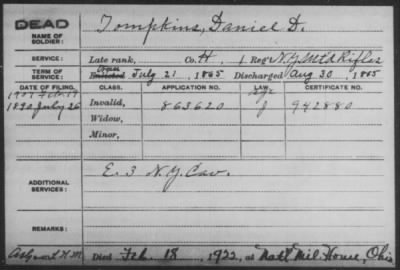 DEAD
NAME OF SOLDIER: Tompkins, Daniel D.
SERVICE: Late rank, Co. H, 1 Reg't N.Y. Mtd Rifles
TERM OF SERVICE: Enlisted July 21, 1865 Discharged Aug 30, 1865
DATE OF FILING. CLASS. APPLICATION NO. LAW. CERTIFICATE NO.
1907 Feb. 19
1890 July 26 Invalid, 863620 942880
Widow,
Minor,
ADDITIONAL SERVICES: E. 3 N.Y. Cav.
REMARKS:
Died Feb. 18, 1922, at Nat'l Mil. Home, Ohio